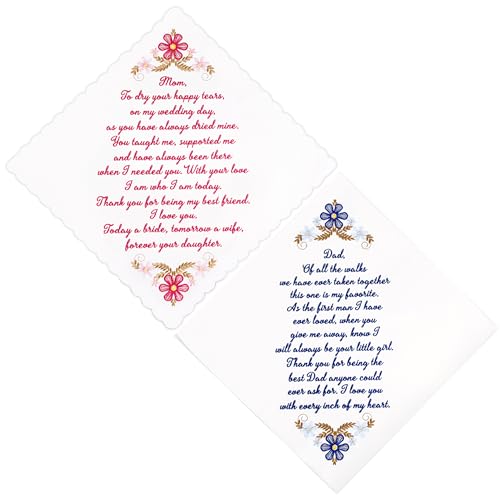 Mom,
To dry your happy tears,
on my wedding day,
as you have always dried mine.
You taught me, supported me
and have always been there
when I needed you. With your love
I am who I am today.
Thank you for being my best friend.
I love you.
Today a bride, tomorrow a wife,
forever your daughter.
Dad,
Of all the walks
we have ever taken together
this one is my favorite.
As the first man I have
ever loved, when you
give me away, know I
will always be your little girl.
Thank you for being the
best Dad anyone could
ever ask for. I love you
with every inch of my heart.